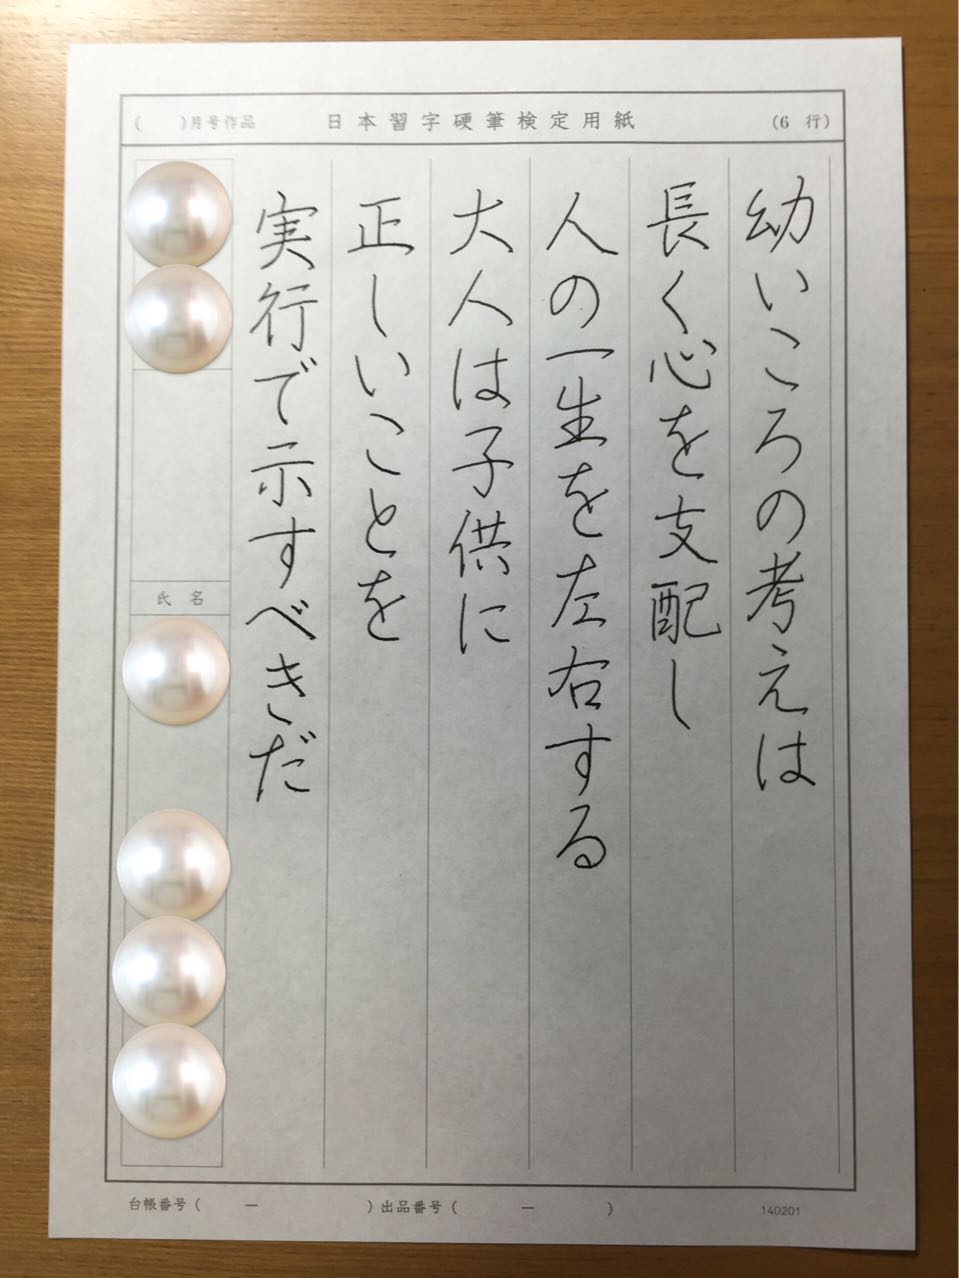 ( )月号作品 日本習字硬筆検定用紙 (6 行)
幼いころの考えは
長く心を支配し
人の一生を左右する
大人は子供に
正しいことを
実行で示すべきだ
氏名
台帳番号( ー )出品番号( ー )
140201